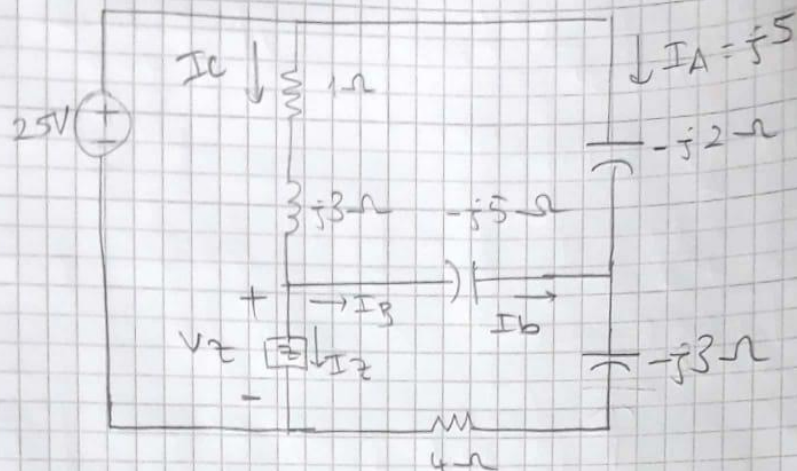 Ic
1Ω
IA = j5
25V
+
-
-j2Ω
j3Ω
-j5Ω
+
→IB
Ib
Vz
z
Iz
-j3Ω
-
4Ω